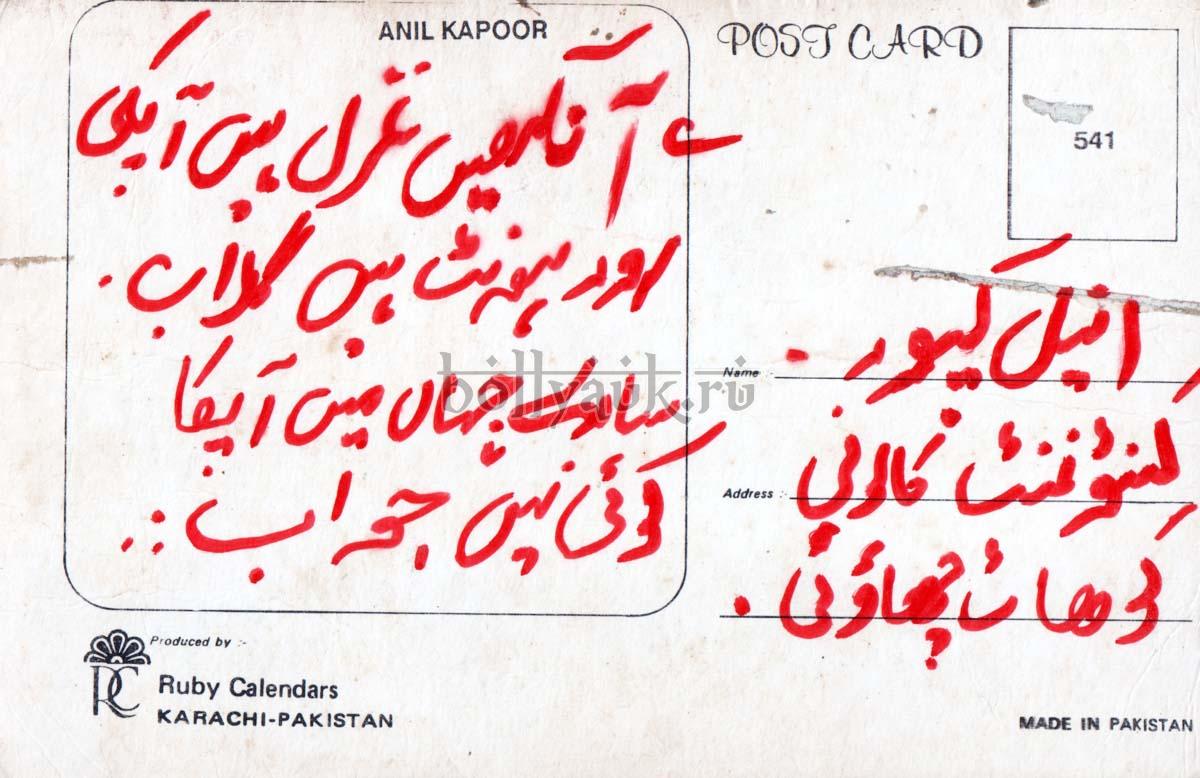 ANIL KAPOOR
؎ آنکھیں غزل ہیں آپکی
اور ہونٹ ہیں گلاب .
سارے جہاں میں آپکا
کوئی نہیں جواب ..
Produced by :-
RC
Ruby Calendars
KARACHI-PAKISTAN
POST CARD
541
Name :-
انیل کپور .
Address :-
کنٹونمنٹ کالونی
چھاؤنی .
MADE IN PAKISTAN
bollyaik.ru